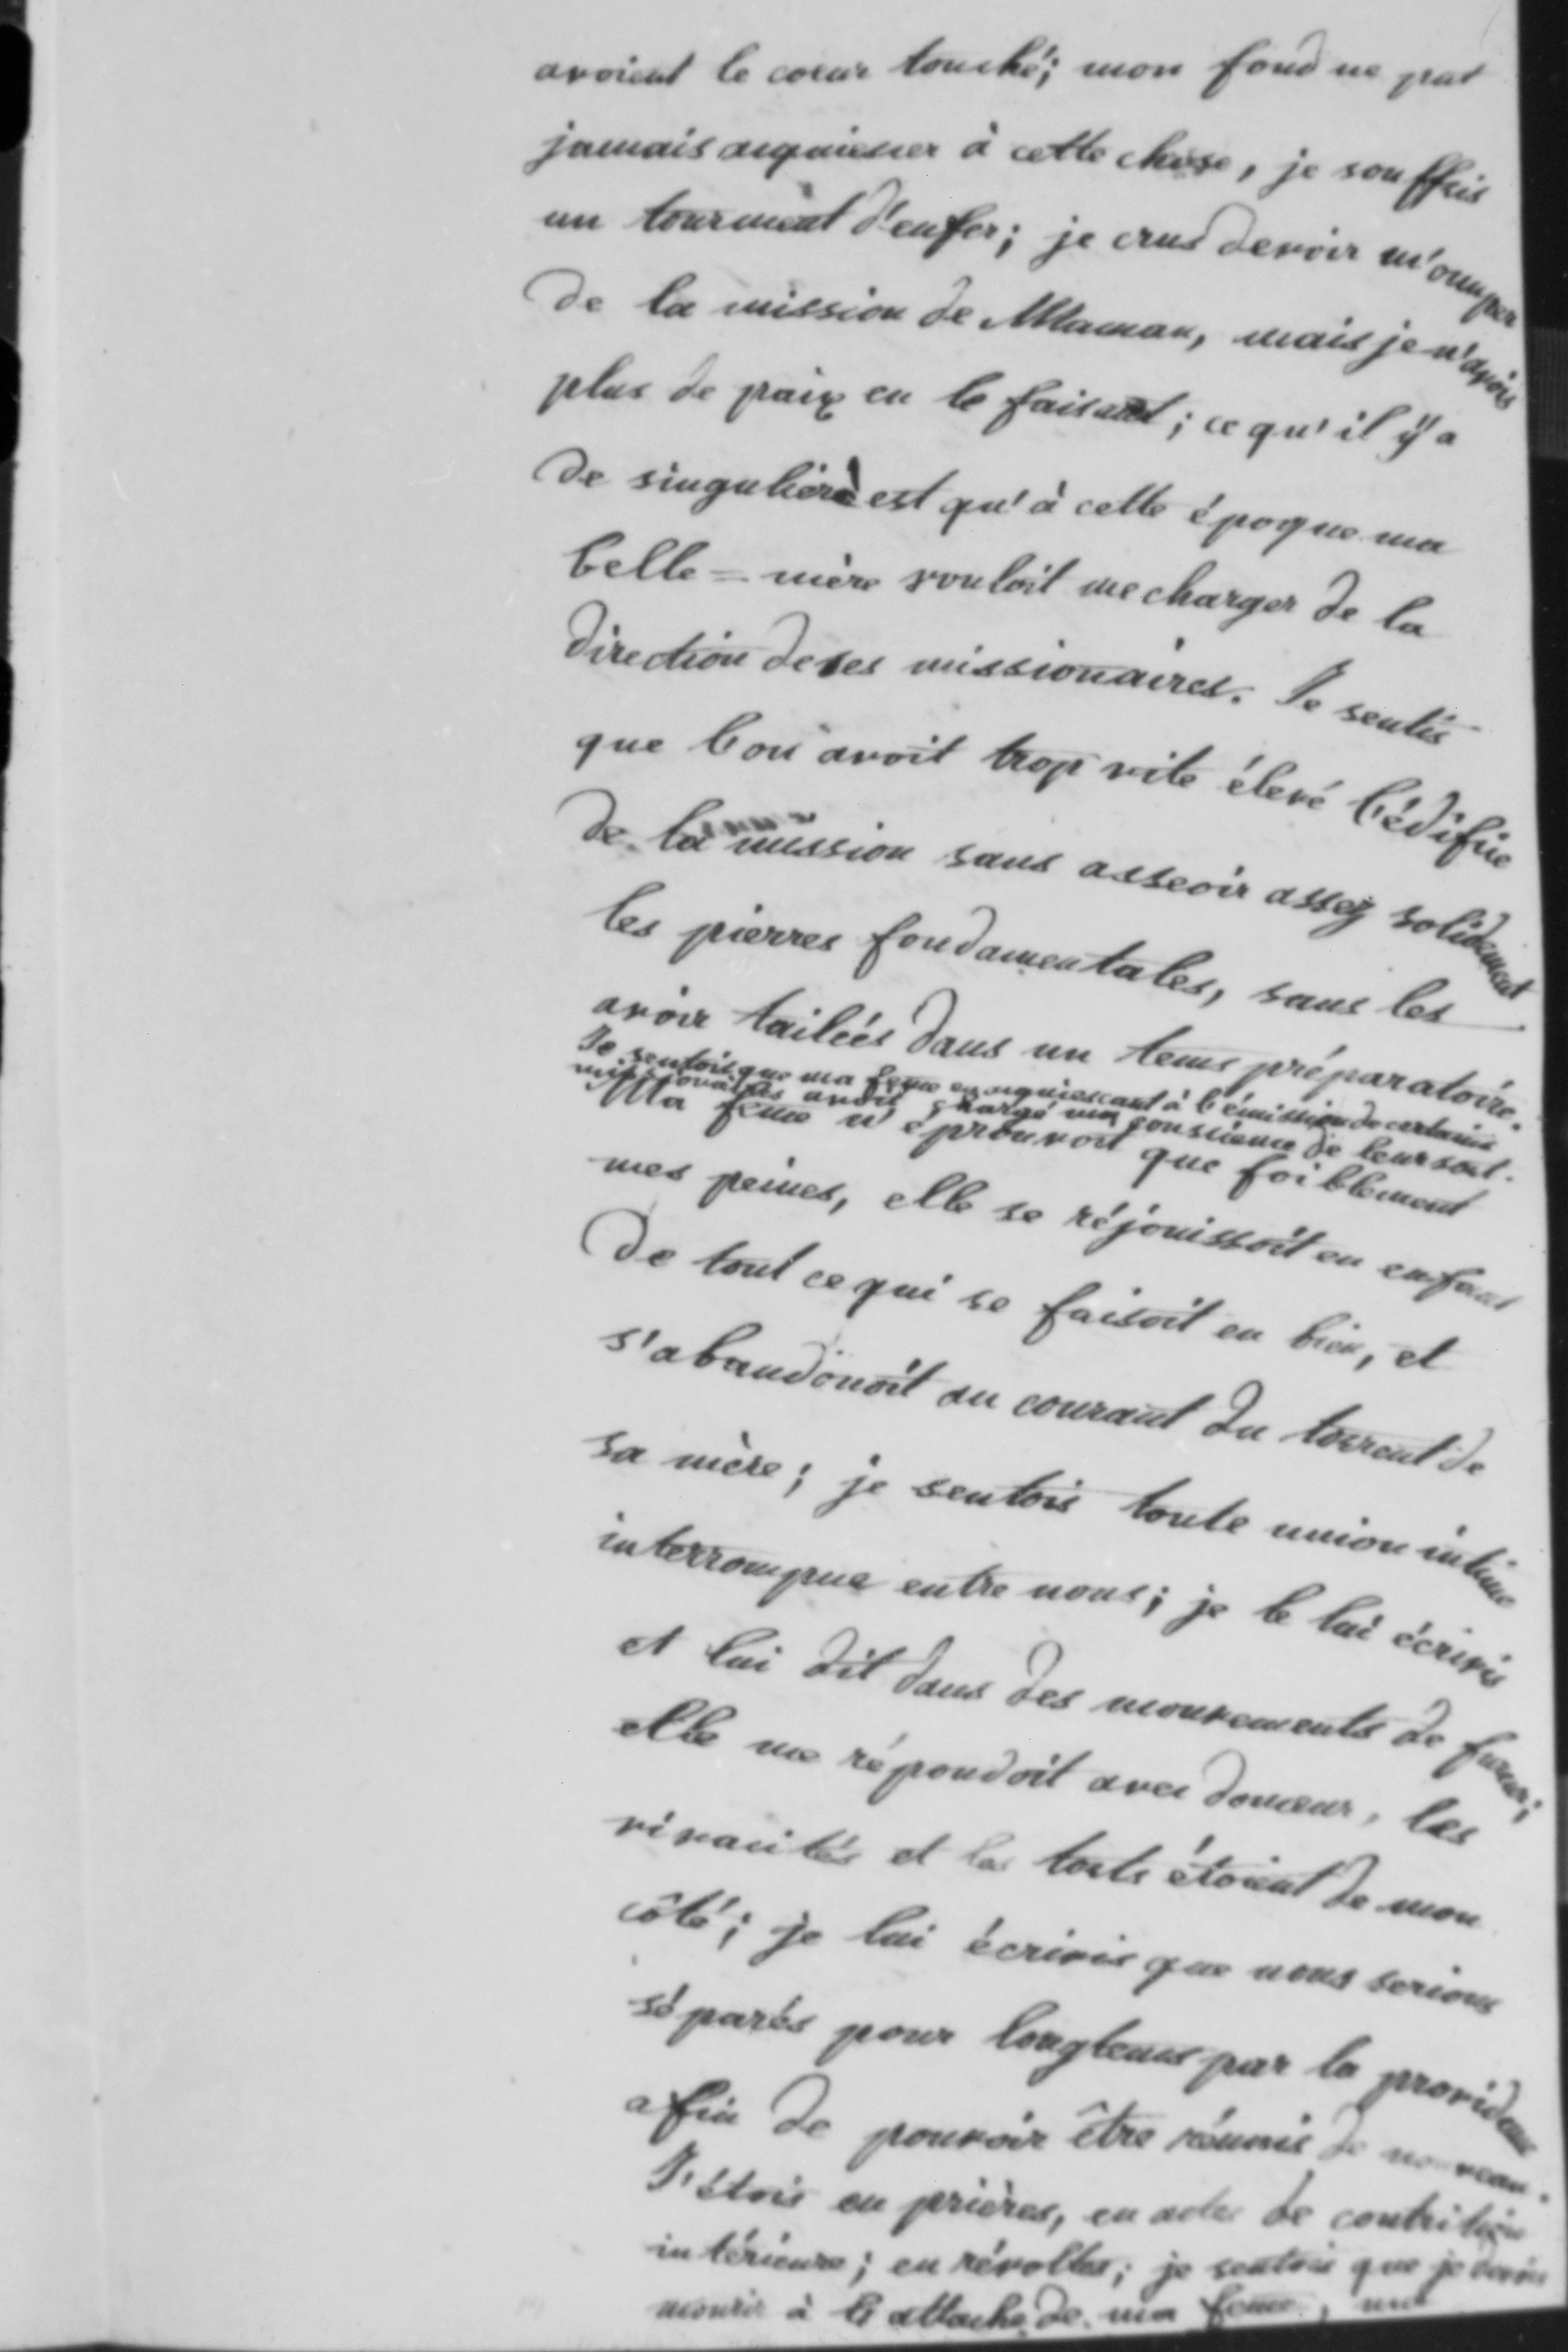 avoient le coeur touché; mon fond ne put
jamais acquiescer à cette chose, je souffris
un tourment d'enfer; je crus devoir m'occuper
de la mission de Maman, mais je n'avois
plus de paix en le faisant; ce qu'il y a
de singulier est qu'à cette époque ma
belle=mère vouloit me charger de la
direction de ses missionaires. Je sentis
que l'on avoit trop vite élevé l'édifice
de la mission sans asseoir assez solidement
les pierres fondamentales, sans les
avoir tailées dans un tems préparatoire.
Je sentois que ma feme en acquiescant à l'émission de certains
missionaires avoit chargé ma conscience de leur sort.
Ma feme n'éprouvoit que foiblement
mes peines, elle se réjouissoit en enfant
de tout ce qui se faisoit en bien, et
s'abandonoit au courant du torrent de
sa mère; je sentois toute union intime
interrompue entre nous; je le lui écrivis
et lui dit dans des mouvements de fureur;
elle me répondoit avec douceur, les
vivacités et les torts étoient de mon
côté; je lui écrivis que nous serions
séparés pour longtems par la providence
afin de pouvoir être réunis de nouveau.
J'étois en prières, en actes de contrition
intérieure; en révoltes; je sentois que je devois
mourir à l'attache de ma feme,